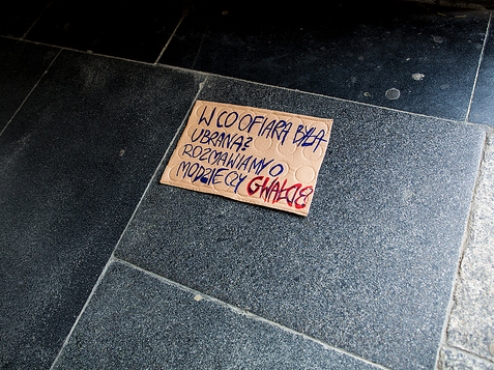 W CO OFIARA BYŁA
UBRANA?
ROZMAWIAMY O
MODZIECZY GWAŁCIE